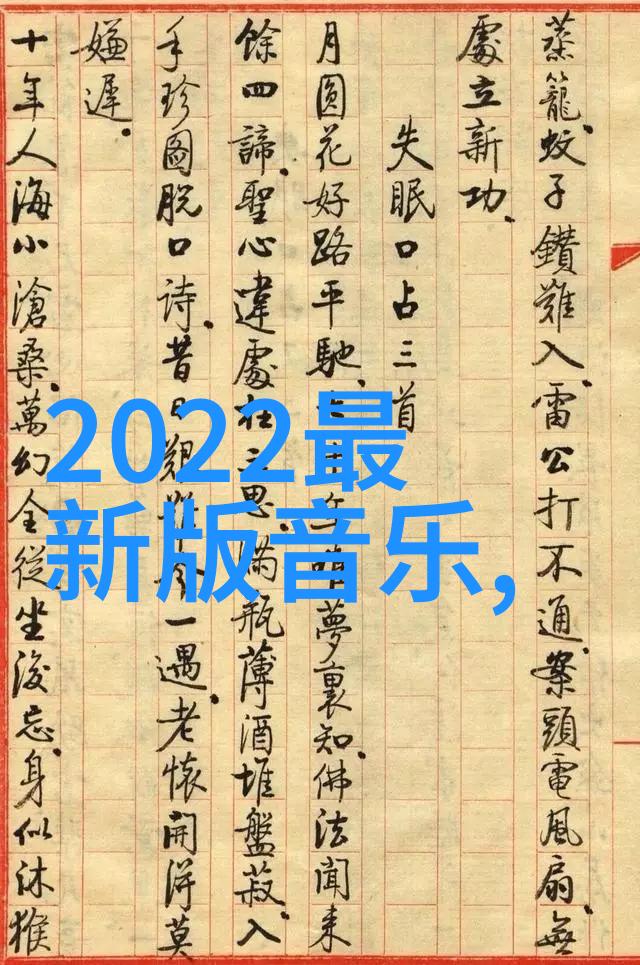 蒸籠、蚊子鑽難入、雷公打不通、案頭電風扇、無
處立新功、
失眠口占三首
月圓花好路平馳、夢裏知、佛法聞来
餘四諦、聖心違處在三思、滿瓶薄酒堆盤菽、入
手珍圖脱口詩、昔日艱難今一遇、老懷開得莫
嫌遲、
十年人海小滄桑、萬幻全從坐後忘、身似沐猴
2022最
新版音乐,